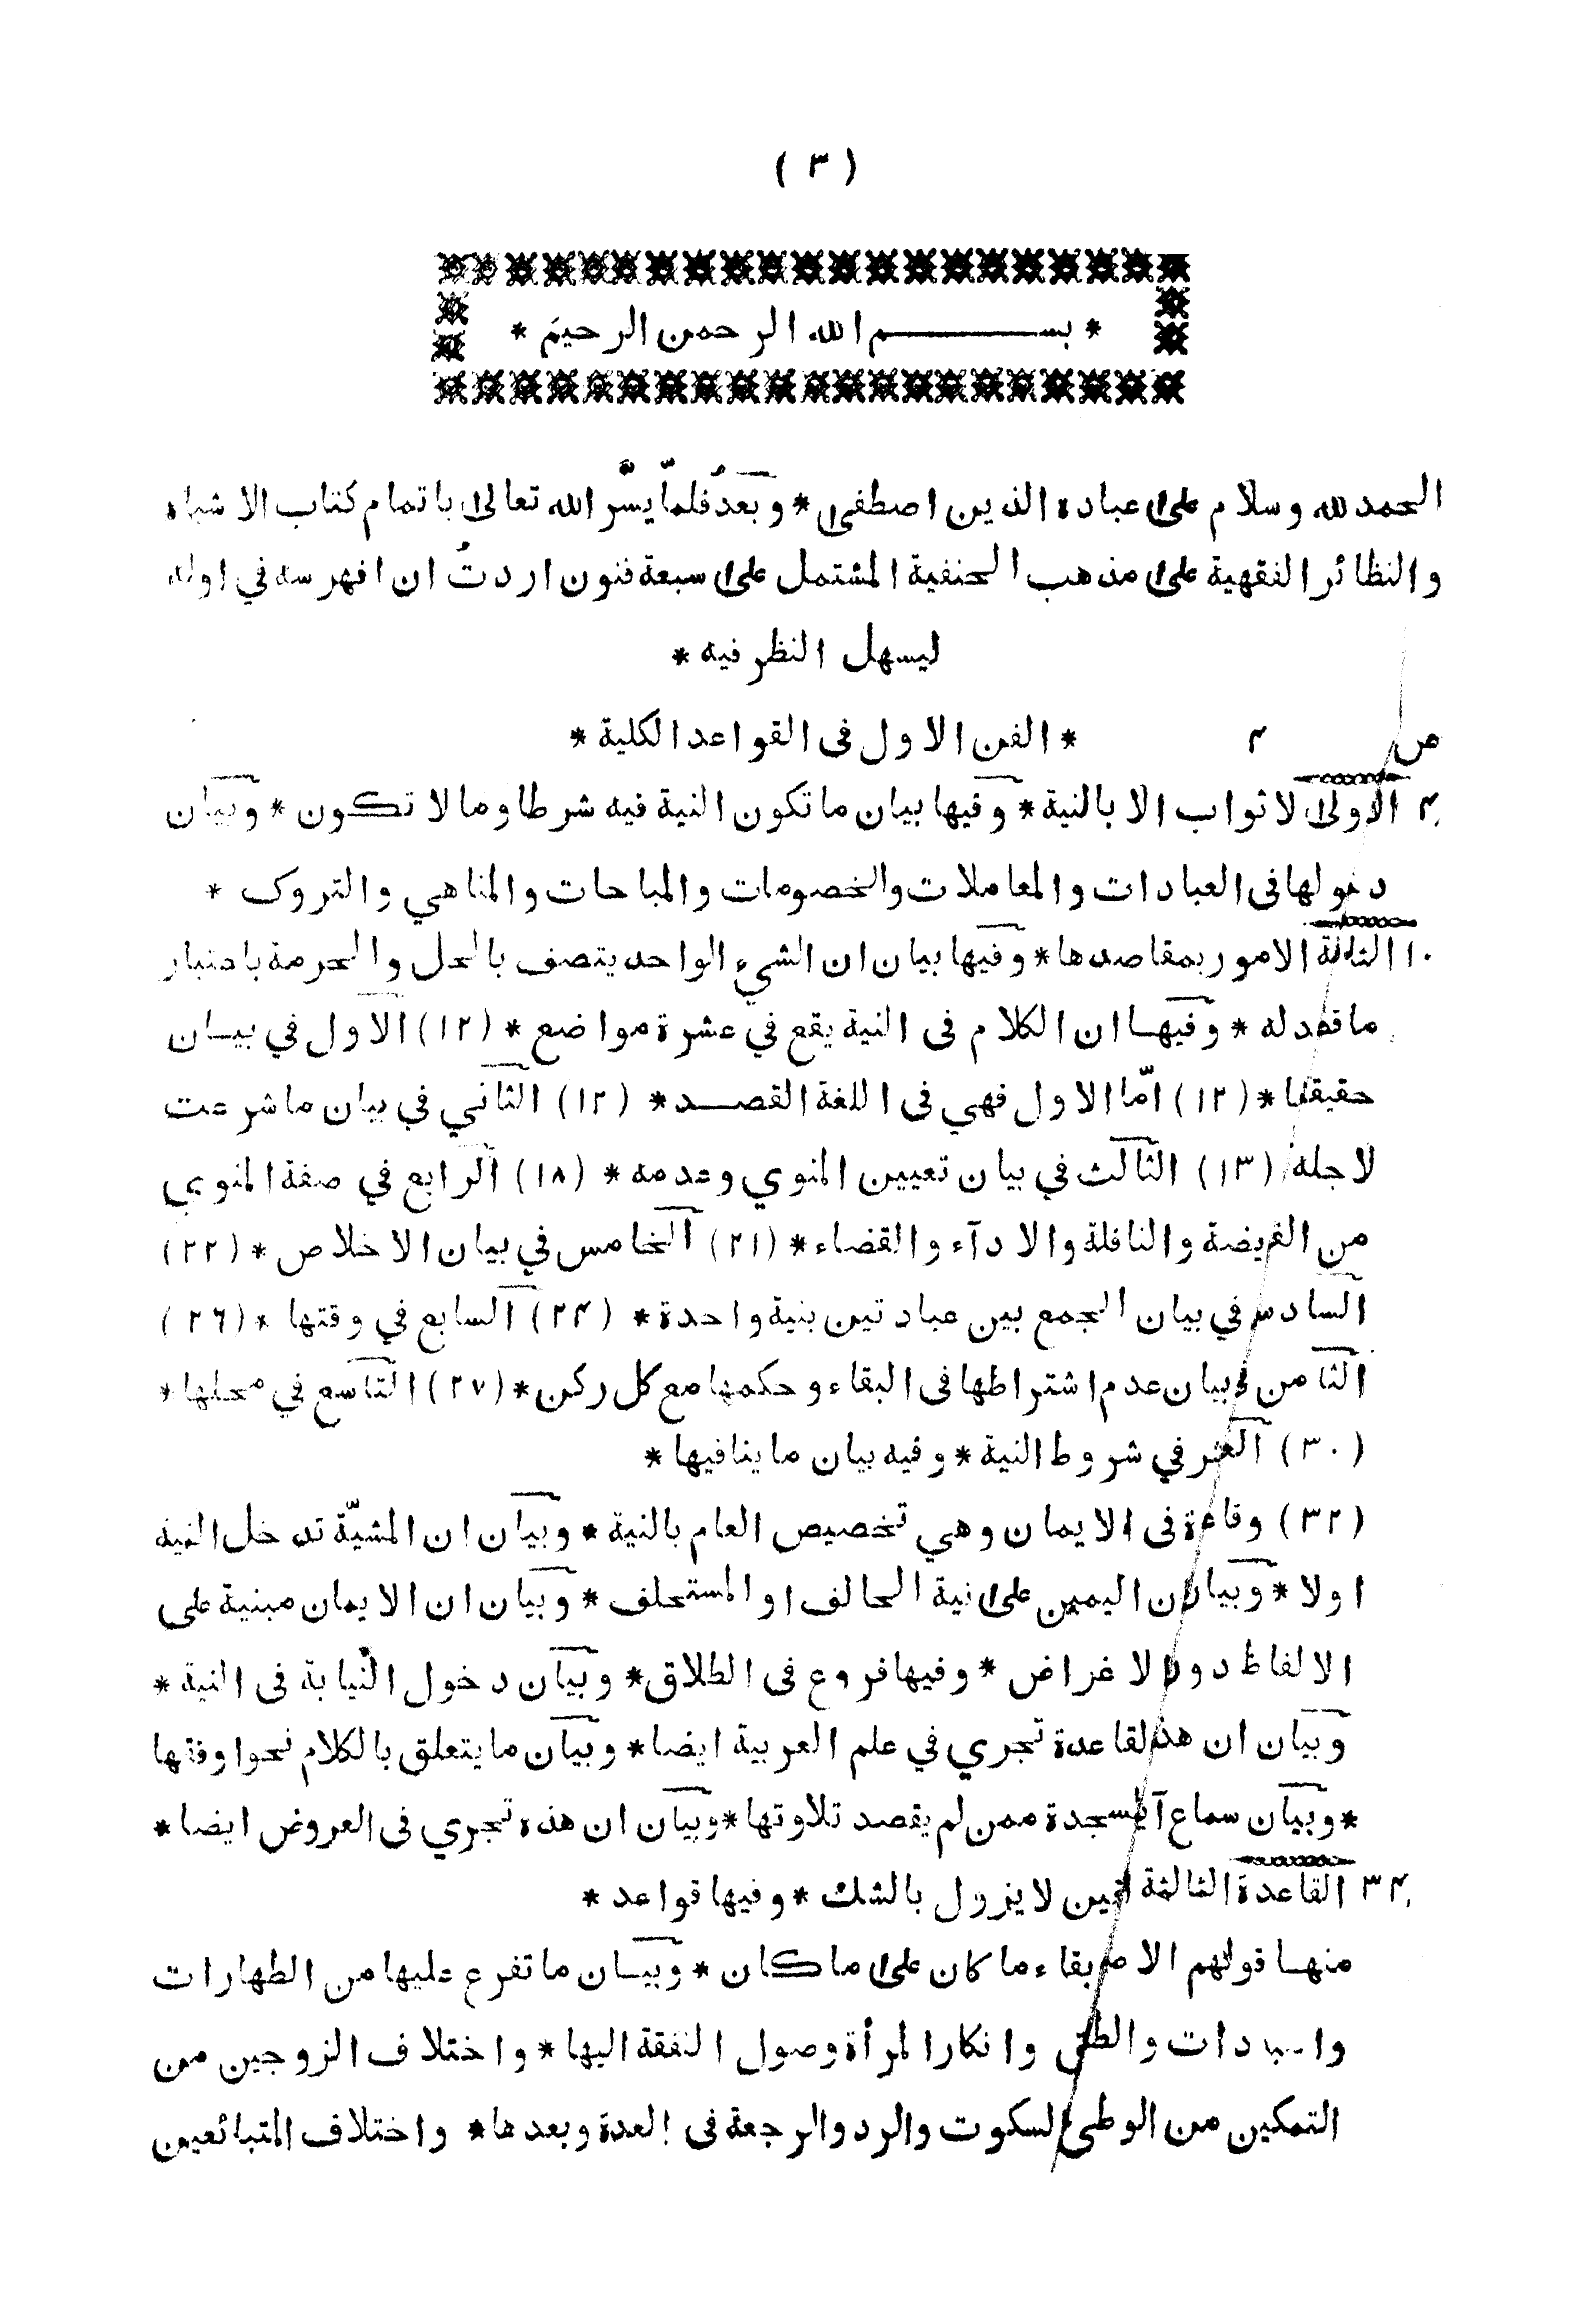 ( ٣ )
* بســـــم الله الرحمن الرحيم *
الحمد لله وسلام على عباده الذين اصطفى * وبعدُ فلمّا يسّر الله تعالى باتمام كتاب الاشباه
والنظائر الفقهية على مذهب الحنفية المشتمل على سبعة فنون اردتُ ان افهرسه في اوله
ليسهل النظر فيه *
ص ٢ * الفن الاول فى القواعد الكلية *
الاولى لا ثواب الا بالنية * وفيها بيان ما تكون النية فيه شرطا وما لا تكون * وبيان
دخولها فى العبادات والمعاملات والخصومات والمباحات والمناهي والتروك *
١٠ الثانية الامور بمقاصدها * وفيها بيان ان الشيء الواحد يتصف بالحل والحرمة باعتبار
ما قصد له * وفيها ان الكلام فى النية يقع في عشرة مواضع * (١٢) الاول في بيان
حقيقتها * (١٢) امّا الاول فهي فى اللغة القصد * (١٢) الثاني في بيان ما شرعت
لاجله (١٣) الثالث في بيان تعيين المنوي وعدمه * (١٨) الرابع في صفة المنوي
من الفريضة والنافلة والادآء والقضاء * (٢١) الخامس في بيان الاخلاص * (٢٢)
السادس في بيان الجمع بين عبادتين بنية واحدة * (٢٤) السابع في وقتها * (٢٦)
الثامن في بيان عدم اشتراطها فى البقاء وحكمها مع كل ركن * (٢٧) التاسع في محلها *
(٣٠) العشر في شروط النية * وفيه بيان ما ينافيها *
(٣٢) وقاعدة فى الايمان وهي تخصيص العام بالنية * وبيان ان المشيّة تدخل النية
اولا * وبيان ان اليمين على نية الحالف او المستحلف * وبيان ان الايمان مبنية على
الالفاظ دون الاغراض * وفيها فروع فى الطلاق * وبيان دخول النيابة فى النية *
وبيان ان هذه القاعدة تجري في علم العربية ايضا * وبيان ما يتعلق بالكلام نحوا وفقها
* وبيان سماع آية السجدة ممن لم يقصد تلاوتها * وبيان ان هذه تجري فى العروض ايضا *
٣٤ القاعدة الثالثة اليقين لا يزول بالشك * وفيها قواعد *
منها قولهم الاصل بقاء ما كان على ما كان * وبيان ما تفرع عليها من الطهارات
والعبادات والطلاق وانكار المرأة وصول النفقة اليها * واختلاف الزوجين من
التمكين من الوطي والسكوت والرد والرجعة فى العدة وبعدها * واختلاف المتبائعين